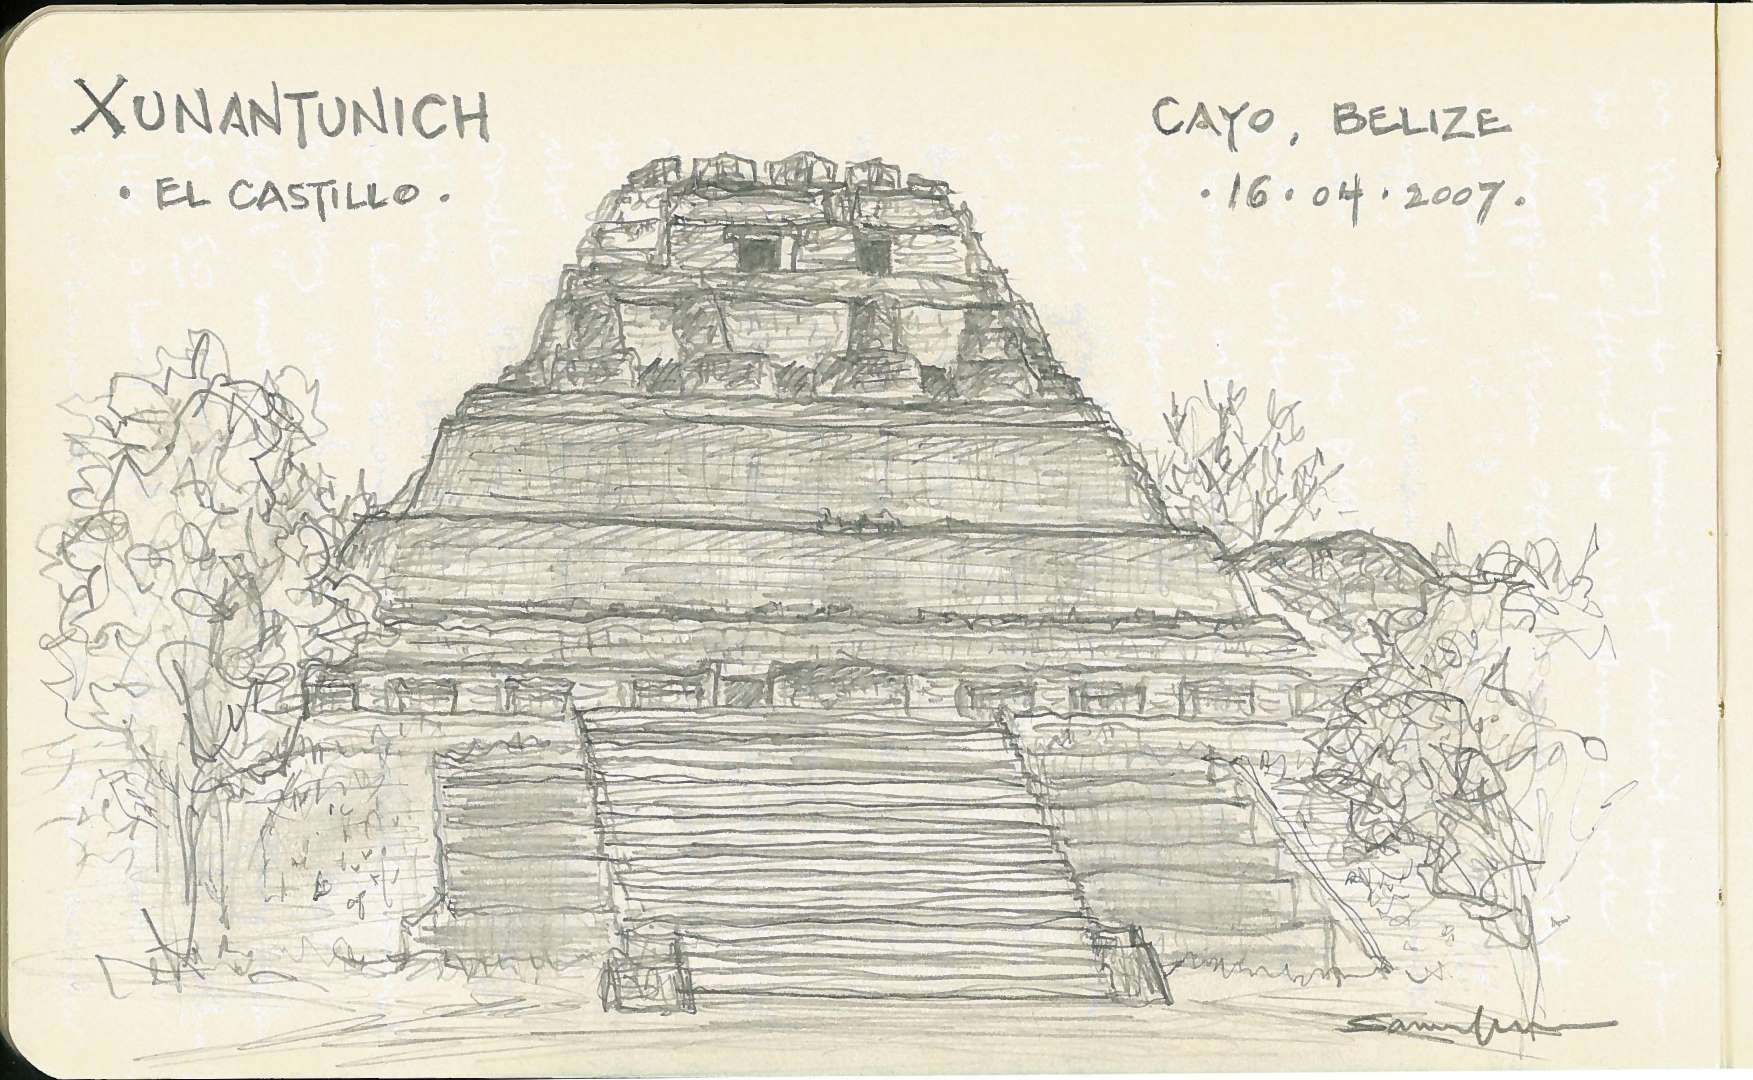 XUNANTUNICH
• EL CASTILLO •
CAYO, BELIZE
• 16 • 04 • 2007 •